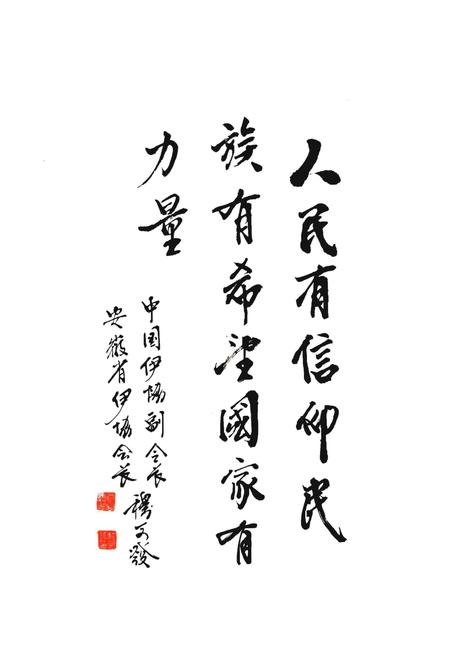 人民有信仰民
族有希望國家有
力量
中国伊協副会长
安徽省伊協会长
穆可發